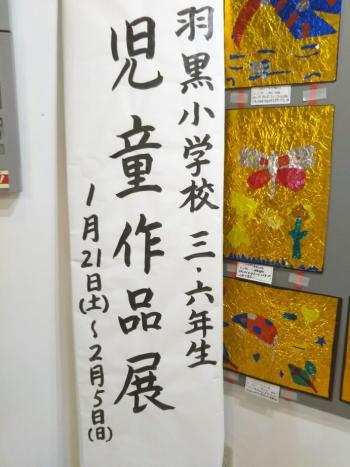 羽黒小学校 三・六年生
児童作品展
1月21日(土)～2月5日(日)